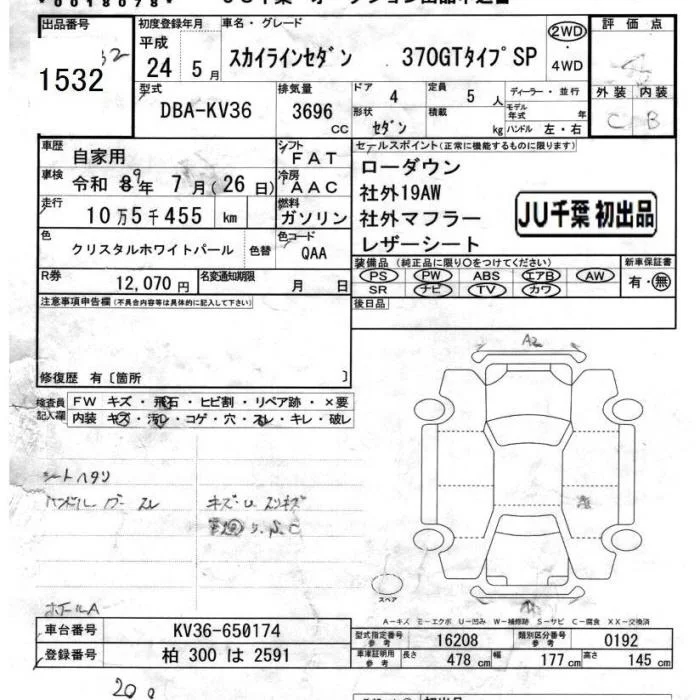 0018078
JU千葉 オークション出品申込書
出品番号
1532
初度登録年月
平成
24年 5月
車名・グレード
スカイラインセダン 370GTタイプSP
2WD
・
4WD
評価点
外装 内装
C B
型式
DBA-KV36
排気量
3696
CC
ドア
4
定員
5 人
形状
セダン
積載
kg
ディーラー・並行
モデル年式 年
ハンドル 左・右
車歴
自家用
シフト
FAT
車検
令和 9年 7月(26日)
冷房
AAC
走行
10万5千455 km
燃料
ガソリン
色
クリスタルホワイトパール
色替
色コード
QAA
R券
12,070円
名変通知期限
月 日
セールスポイント(正常に機能するものに限ります)
ローダウン
社外19AW
社外マフラー
レザーシート
JU千葉 初出品
装備品(純正品に限り〇をつけてください)
PS PW ABS エアB AW
SR ナビ TV カワ
新車保証書
有・無
後日品
注意事項申告欄(不具合内容等は具体的に記入して下さい)
修復歴 有〔箇所 〕
検査員記入欄
FW キズ・飛石・ヒビ割・リペア跡・×要
内装 キズ・汚レ・コゲ・穴・スレ・キレ・破レ
シートヘタリ
ハンドル
スレ
キズ・U
ホイールA
A2
スペア
A-キズ E-エクボ U-凹み W-補修跡 S-サビ C-腐食 XX-交換済
車台番号
KV36-650174
登録番号
柏 300 は 2591
型式指定番号
参考
16208
類別区分番号
参考
0192
車車証明用
参考
長さ
478 cm
幅
177 cm
高さ
145 cm
初出品